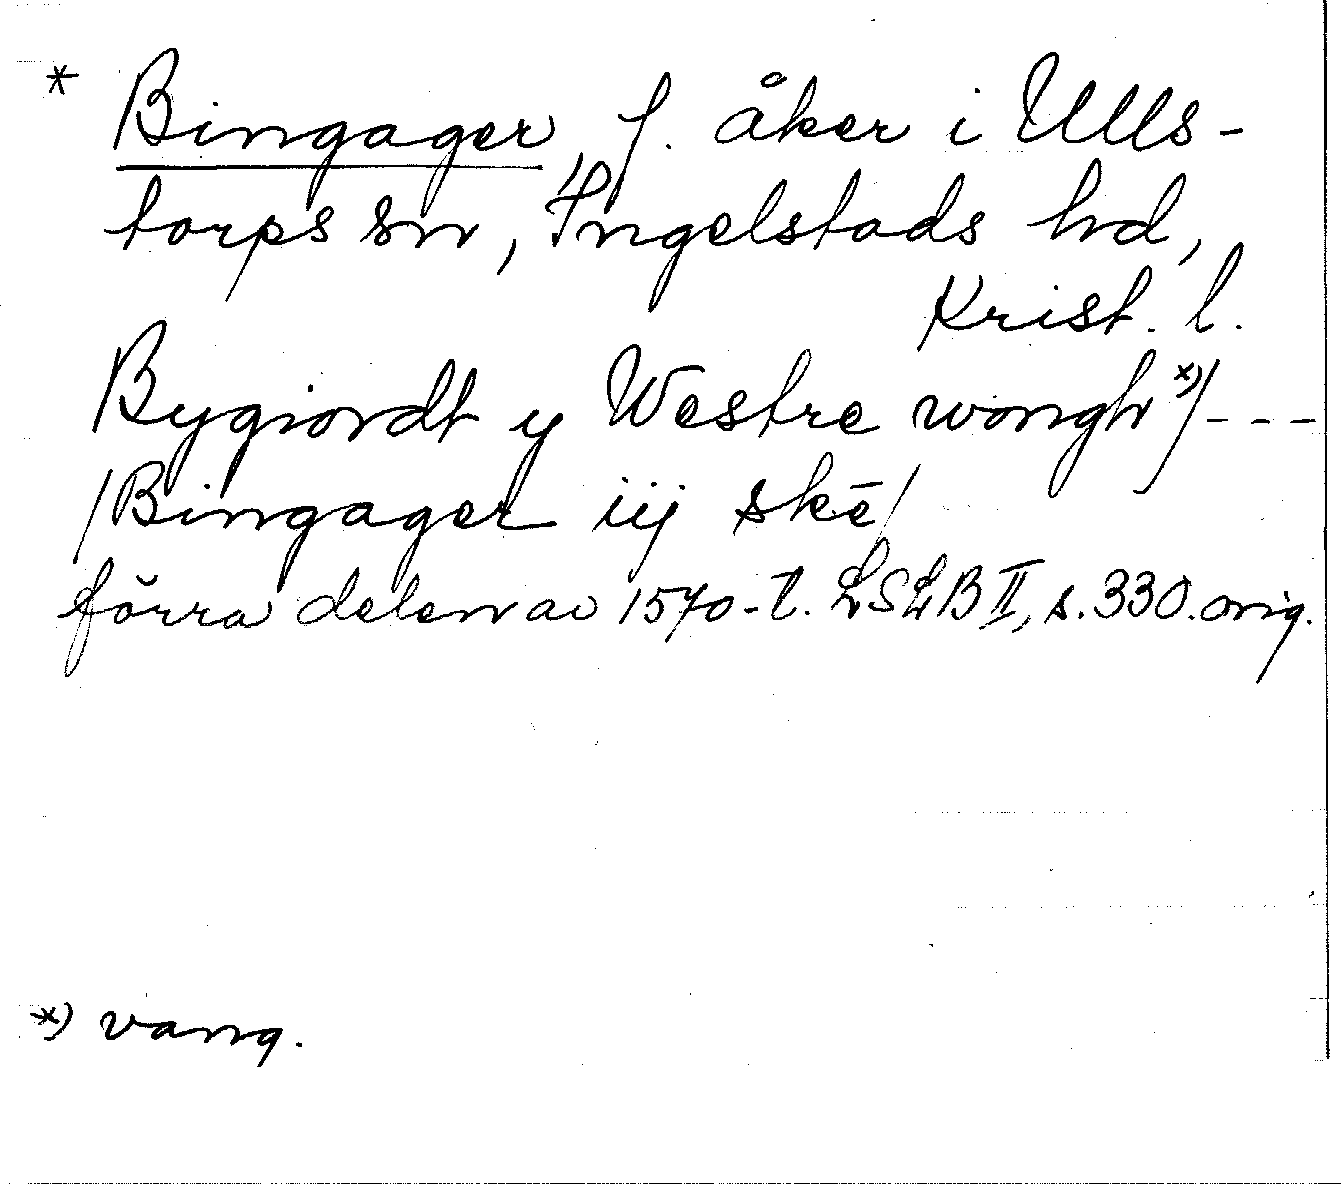 * Bingager, f. åker i Ulls-
torps sn, Ingelstads hd,
Krist. l.
Bygiordt y Westre wongh *)/---
/Bingager iij skē/
förra delen av 1570-t. LSLB II, s. 330. orig.
*) vang.